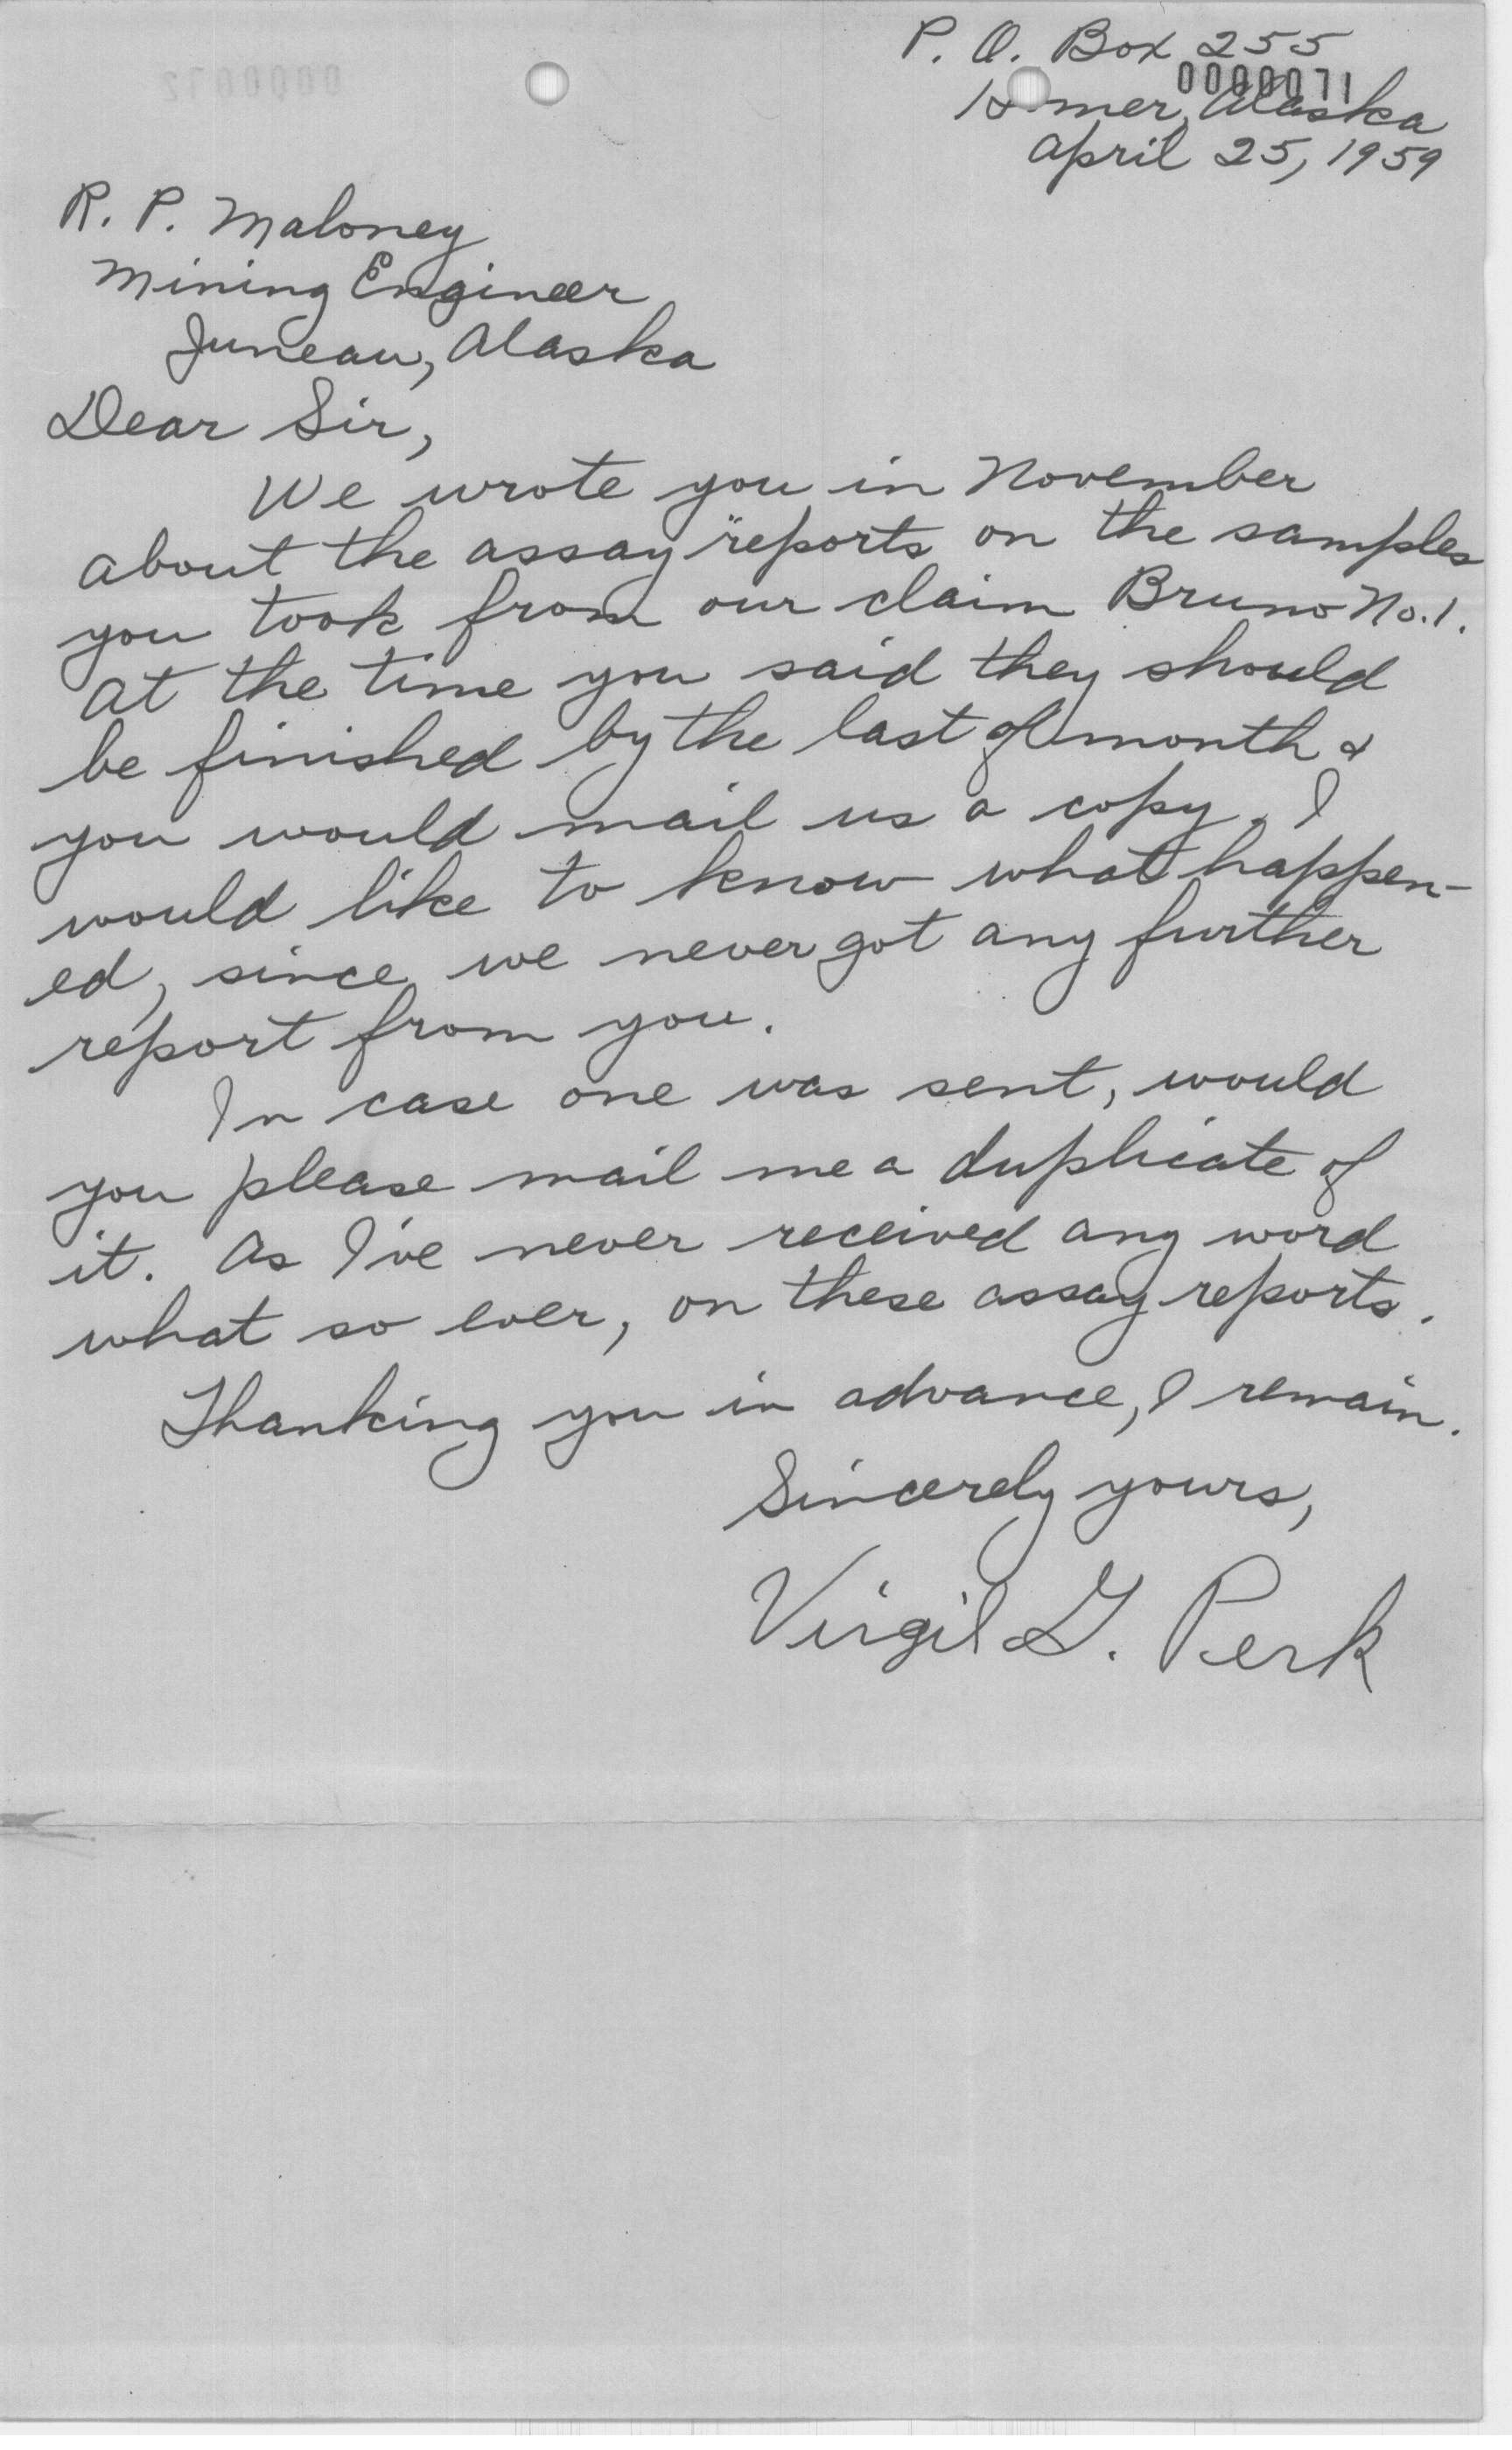 P. O. Box 255
0000071
Homer, Alaska
April 25, 1959
R. P. Maloney
Mining Engineer
Juneau, Alaska
Dear Sir,
We wrote you in November
about the assay "reports on the samples
you took from our claim Bruno No. 1.
At the time you said they should
be finished by the last of month &
you would mail us a copy. I
would like to know what happen-
ed, since we never got any further
report from you.
In case one was sent, would
you please mail me a duplicate of
it. As I've never received any word
what so ever, on these assay reports.
Thanking you in advance, I remain.
Sincerely yours,
Virgil G. Perk